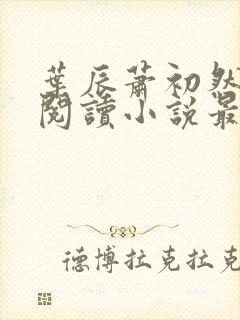 葉辰蕭初然
閱讀小說最
德博拉克拉克